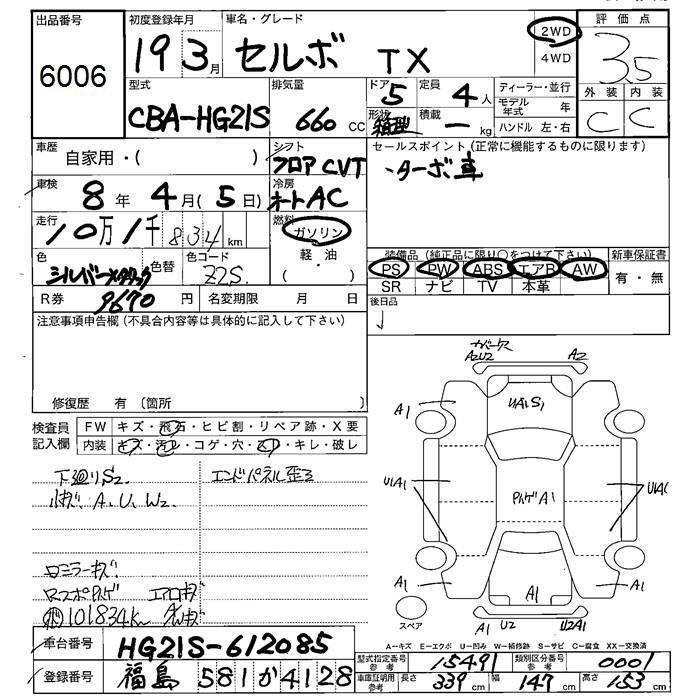 出品番号
6006
初度登録年月
19 3月
車名・グレード
セルボ TX
2WD
4WD
評価点
3.5
外装 内装
C C
型式
CBA-HG21S
排気量
660 cc
ドア
5
形状
箱型
定員
4人
積載
— kg
ディーラー・並行
モデル年式 年
ハンドル 左・右
車歴
自家用・( )
シフト
フロア CVT
セールスポイント(正常に機能するものに限ります)
・ターボ車
車検
8年 4月(5日)
冷房
オートAC
走行
10万1千834km
燃料
ガソリン
軽・油
( )
色
シルバーメタリック
色替
色コード
Z2S
装備品(純正品に限り○をつけて下さい)
PS PW ABS エアB AW
SR ナビ TV 本革
新車保証書
有・無
R券 9670 円
名変期限 月 日
後日品
注意事項申告欄(不具合内容等は具体的に記入して下さい)
修復歴 有(箇所
検査員記入欄
FW キズ・飛石・ヒビ割・リペア跡・X要
内装 キズ・汚れ・コゲ・穴・凹・キレ・破レ
下廻りS2
小キズ A、U、W2
エンドパネル歪ミ
ロミラーキズ
101834K
カバーズレ
A2U2
A2
A1
U1A1S1
U1A1
U1A1
A1
A1
A1
A1
U2
U2A1
スペア
A-キズ E-エクボ U-凹み W-補修跡 S-サビ C-腐食 XX-交換済
車台番号
HG21S-612085
登録番号
福島 581 か 4128
型式指定番号 参考
15491
類別区分番号 参考
0001
車庫証明用 参考
長さ 339 cm
幅 147 cm
高さ 153 cm